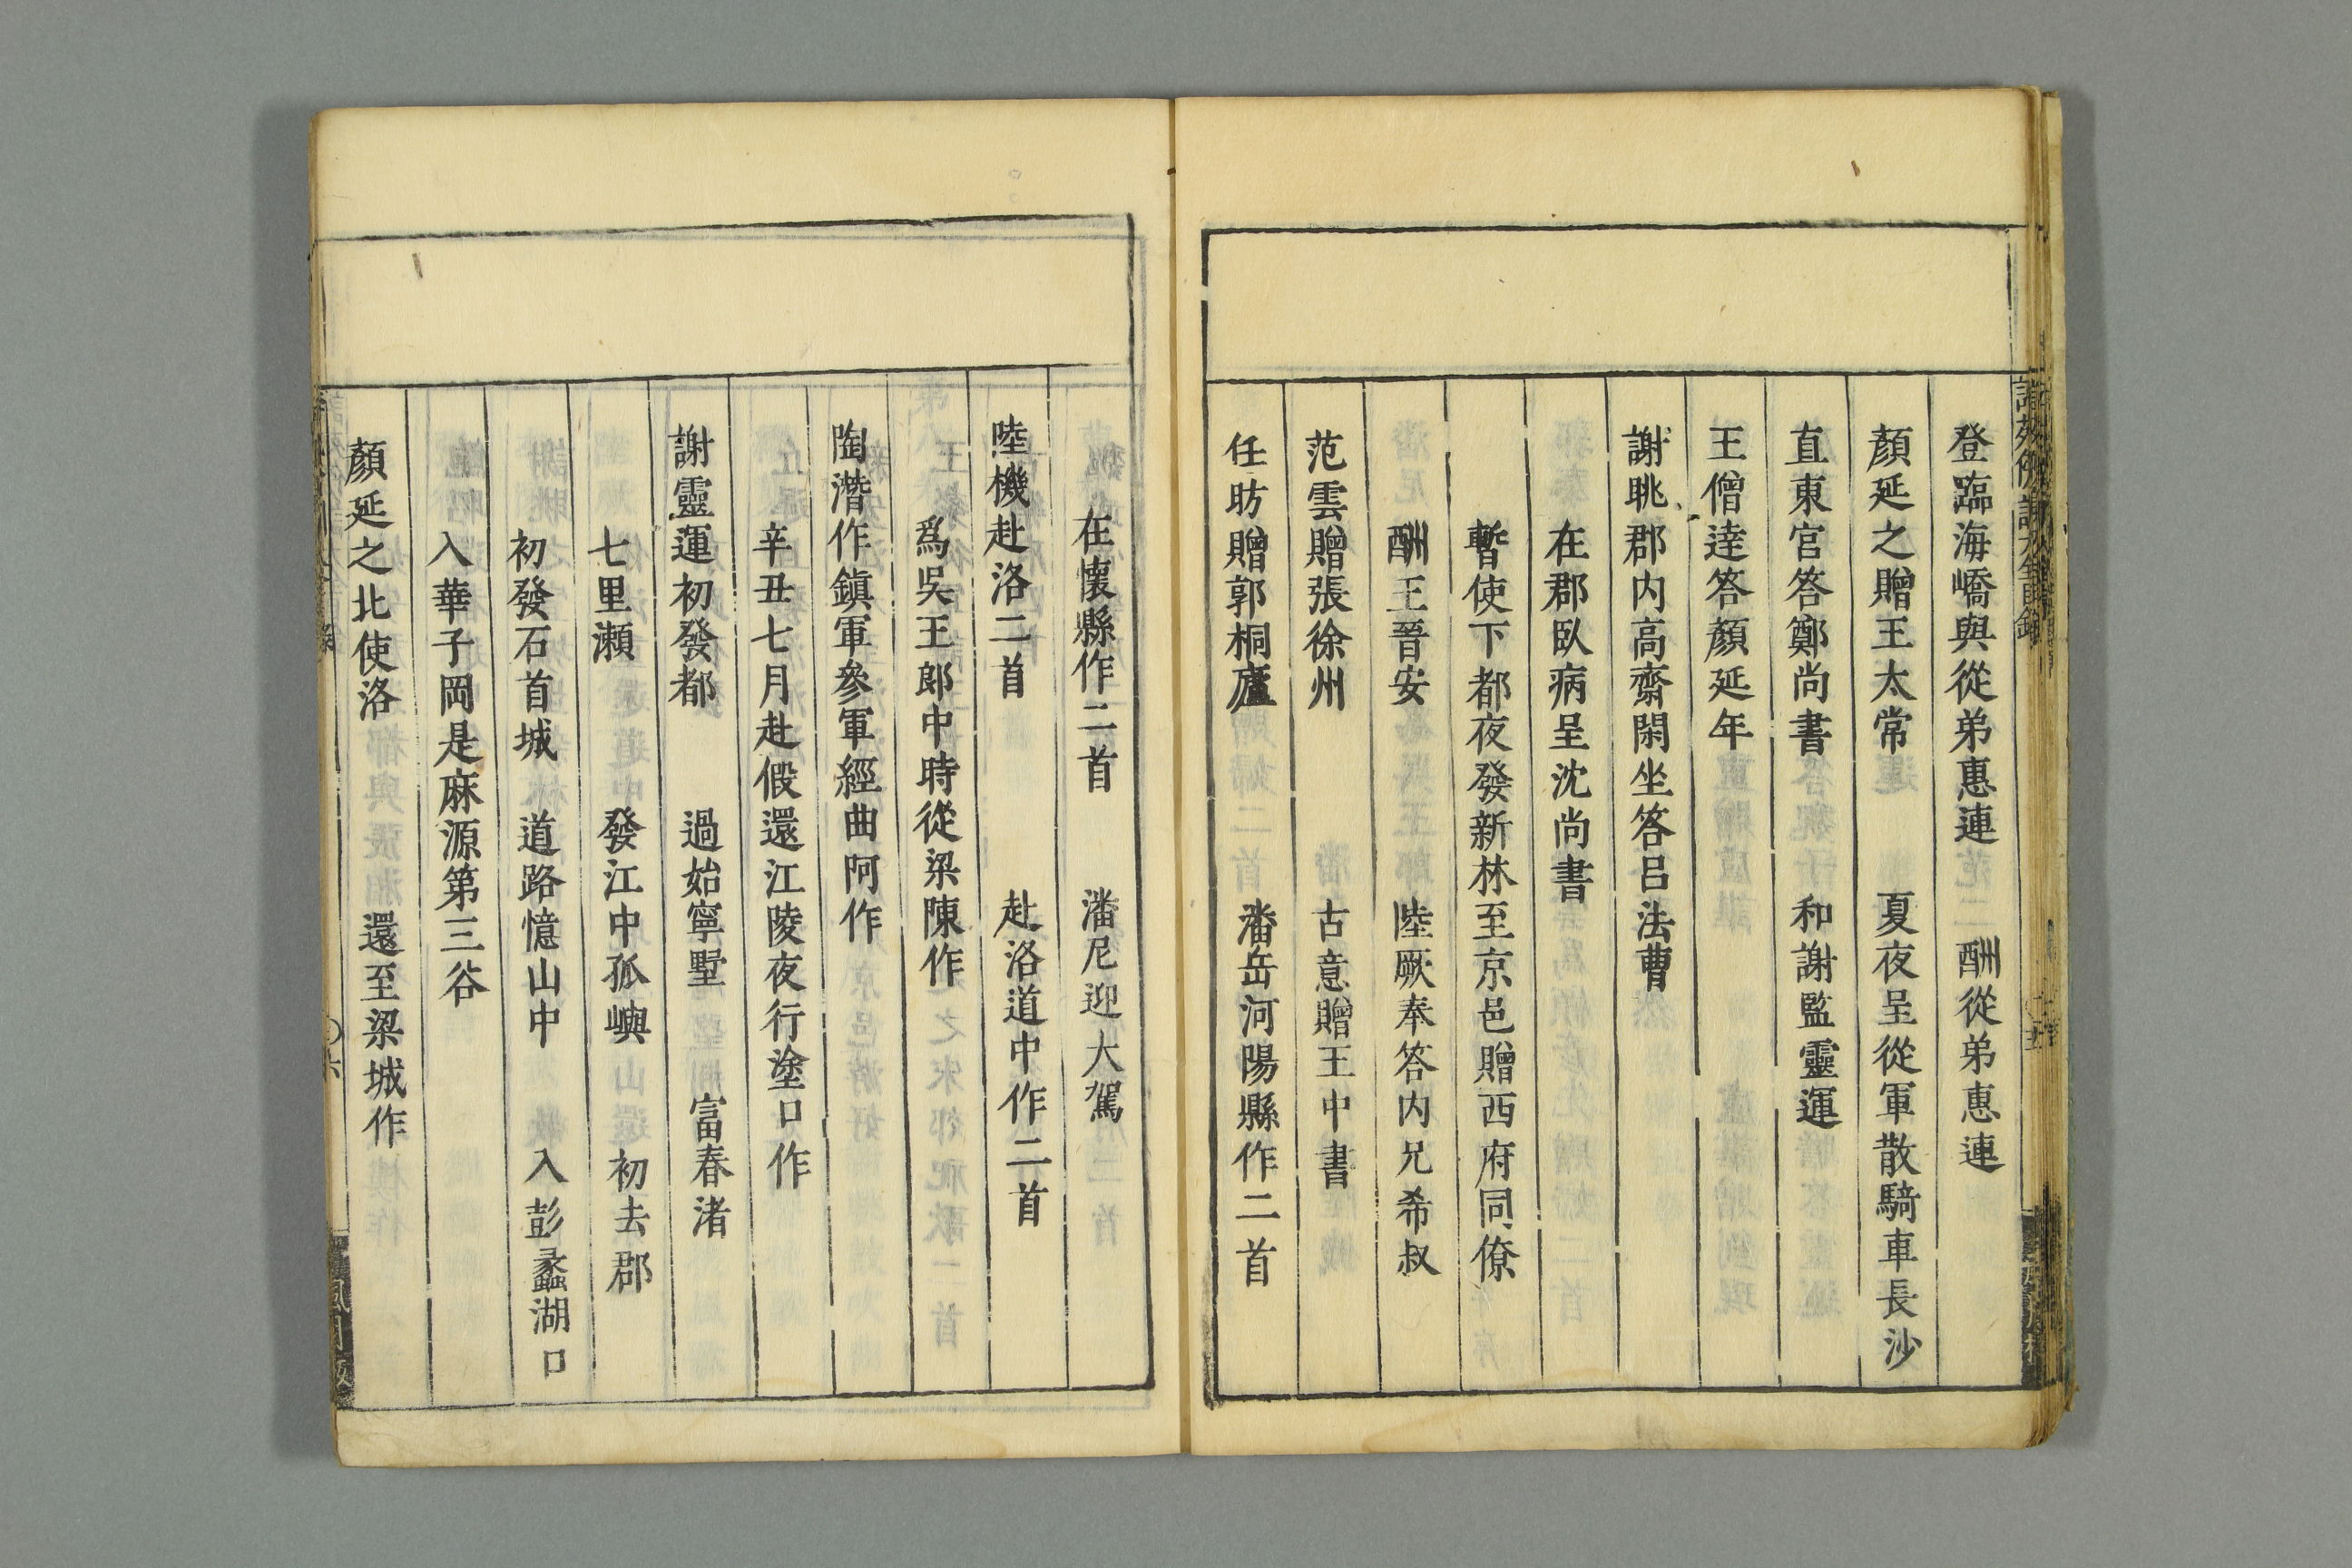 登臨海嶠與從弟惠連　酬從弟惠連
顏延之贈王太常　夏夜呈從軍散騎車長沙
直東宮答鄭尚書　和謝監靈運
王僧達答顏延年
謝眺郡内高齋閑坐答呂法曹
在郡臥病呈沈尚書
暫使下都夜發新林至京邑贈西府同僚
酬王晉安　陸厥奉答内兄希叔
范雲贈張徐州　古意贈王中書
任昉贈郭桐廬　潘岳河陽縣作二首
在懷縣作二首　潘尼迎大駕
陸機赴洛二首　赴洛道中作二首
爲吳王郎中時從梁陳作
陶潛作鎮軍參軍經曲阿作
辛丑七月赴假還江陵夜行塗口作
謝靈運初發都　過始寧墅　富春渚
七里瀨　發江中孤嶼　初去郡
初發石首城　道路憶山中　入彭蠡湖口
入華子岡是麻源第三谷
顏延之北使洛　還至梁城作